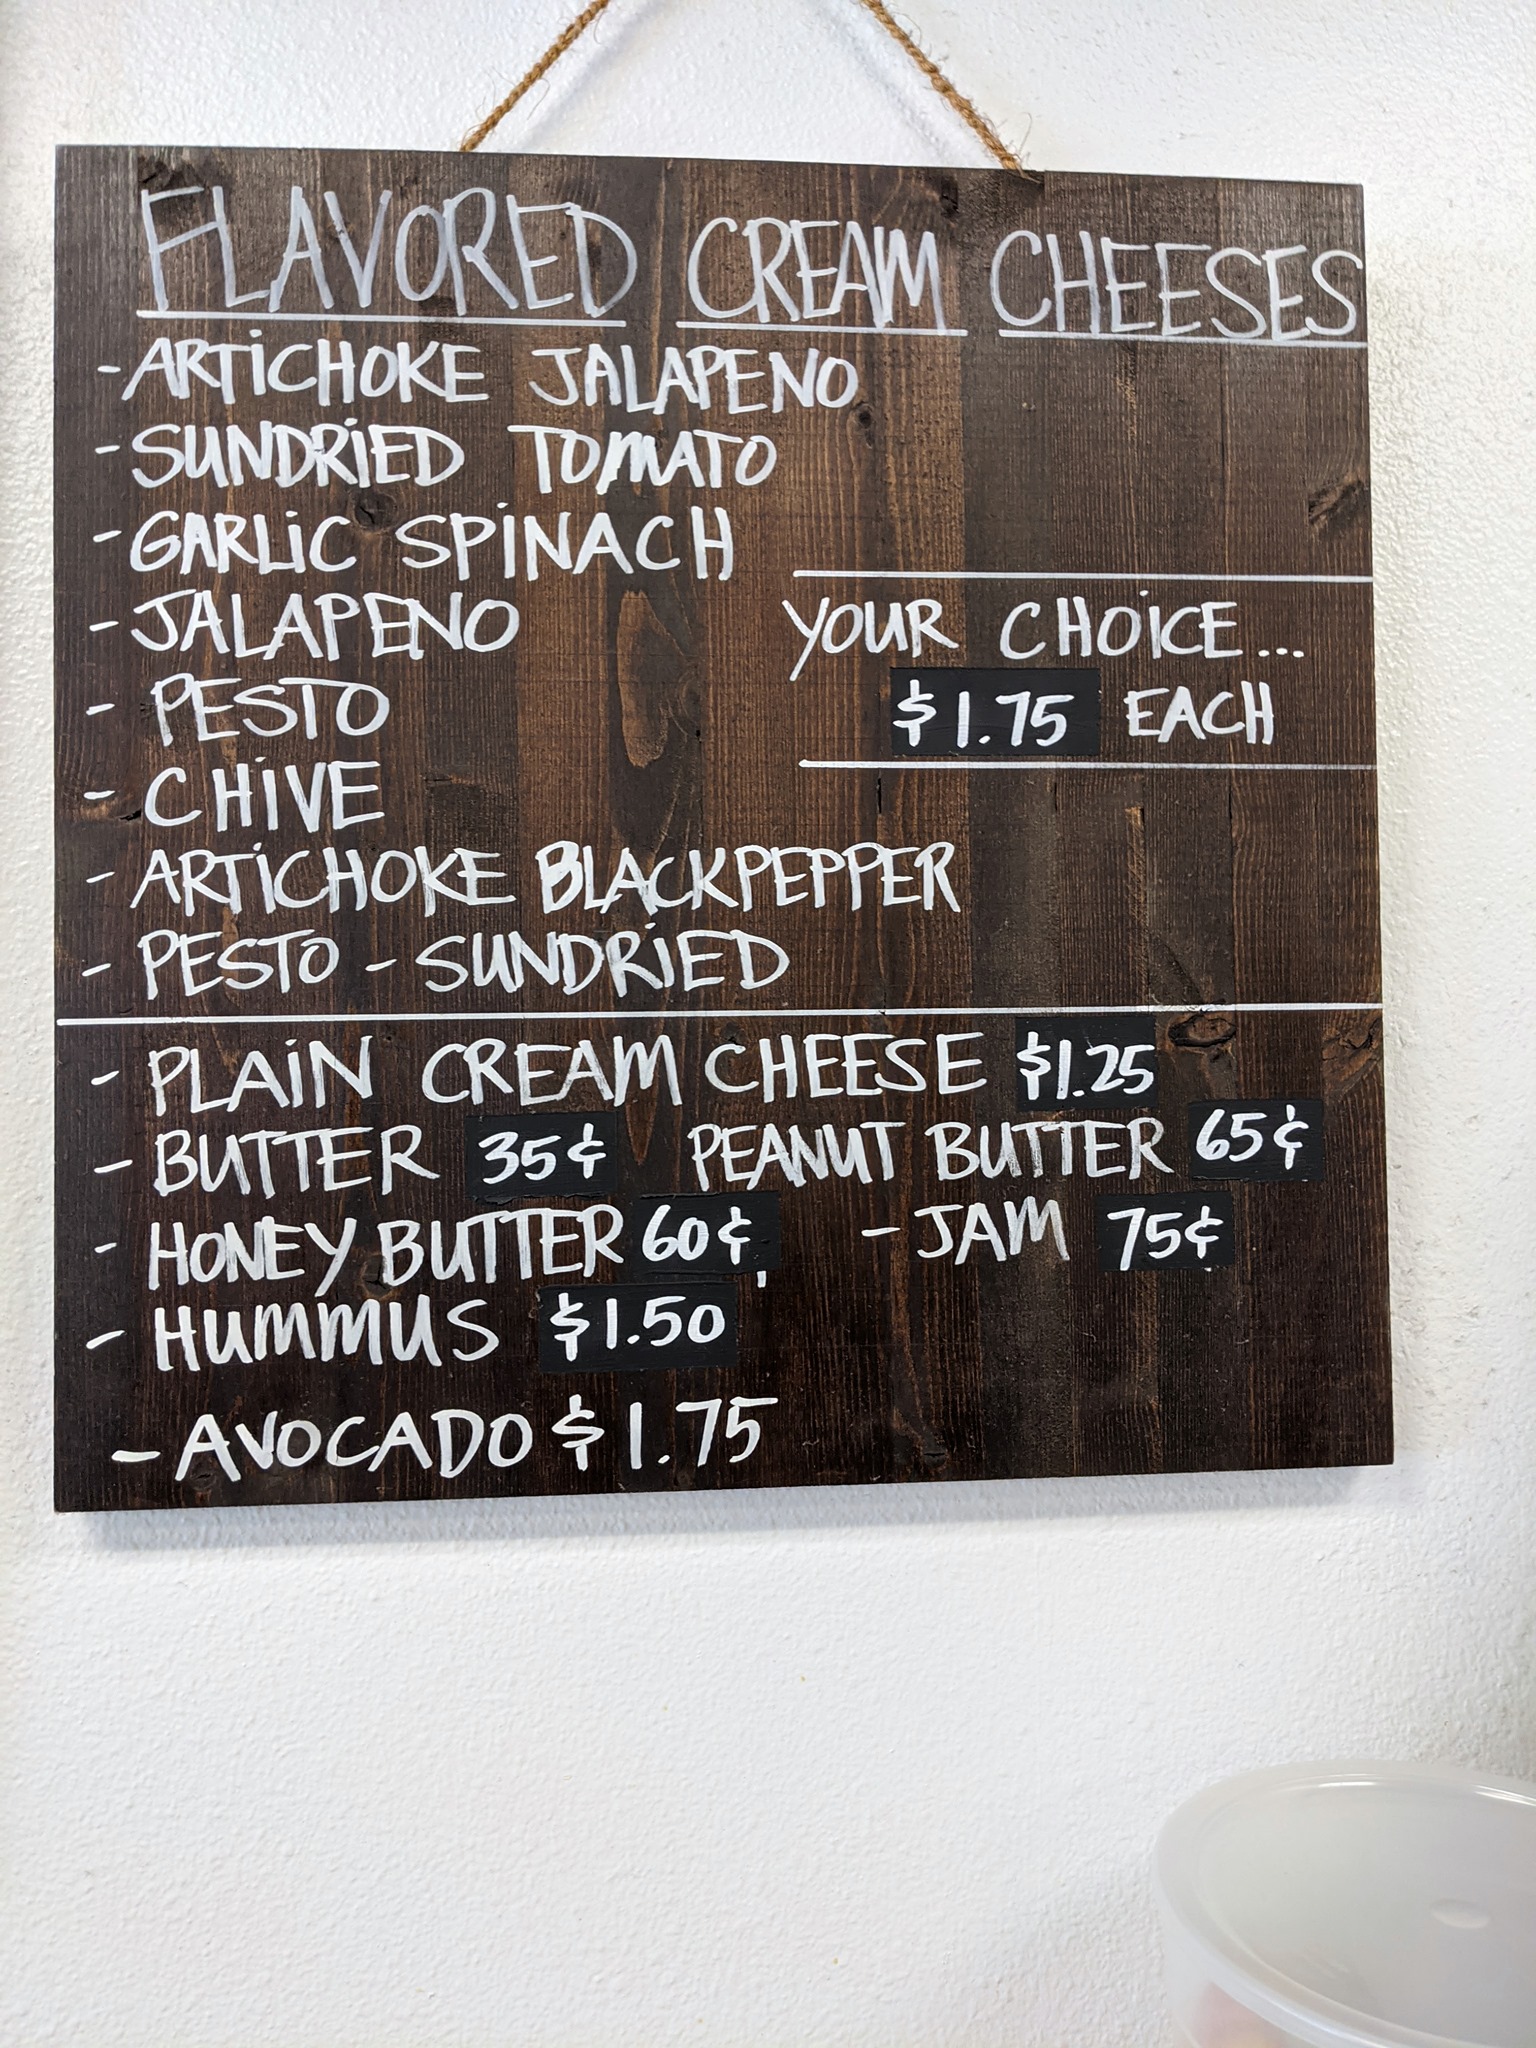 FLAVORED CREAM CHEESES
- ARTICHOKE JALAPENO
- SUNDRIED TOMATO
- GARLIC SPINACH
- JALAPENO
- PESTO
- CHIVE
- ARTICHOKE BLACKPEPPER
- PESTO - SUNDRIED
YOUR CHOICE...
$1.75 EACH
- PLAIN CREAM CHEESE $1.25
- BUTTER 35¢ PEANUT BUTTER 65¢
- HONEY BUTTER 60¢ - JAM 75¢
- HUMMUS $1.50
- AVOCADO $1.75